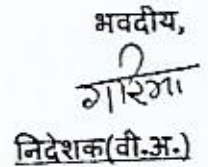 भवदीय,
गरिमा
निदेशक(वी.अ.)